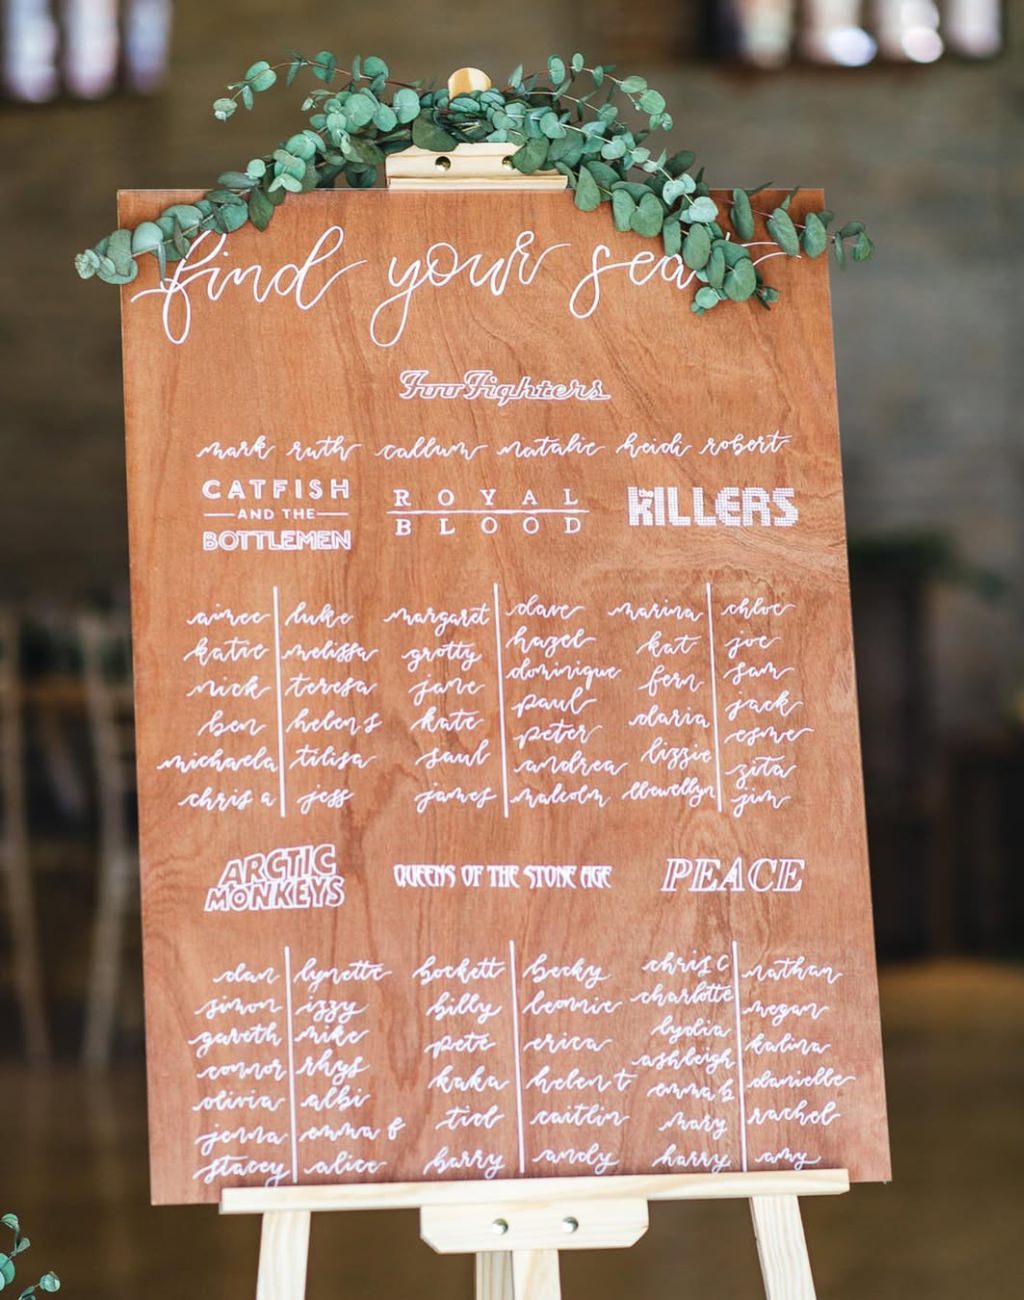 find your seat
Foo Fighters
mark ruth callum natalie heidi robert
CATFISH
AND THE
BOTTLEMEN
aimee luke
katie melissa
nick teresa
ben helen s
michaela tilisa
chris a jess
ROYAL
BLOOD
margaret
grotty
jane
kate
saul
james
dave
hazel
dominique
paul
peter
andrea
malcolm
THE KILLERS
marina
kat
fern
daria
lizzie
llewellyn
chloe
joe
sam
jack
esme
zita
jim
ARCTIC
MONKEYS
dan lynette
simon izzy
gareth mike
connor rhys
olivia albi
jenna emma f
stacey alice
QUEENS OF THE STONE AGE
bockett becky
billy leonnie
pete erica
kaka helen t
tiel caitlin
barry andy
PEACE
chris c
charlotte
lydia
ashleigh
emma b
mary
harry
nathan
megan
kalina
danielle
rachel
amy